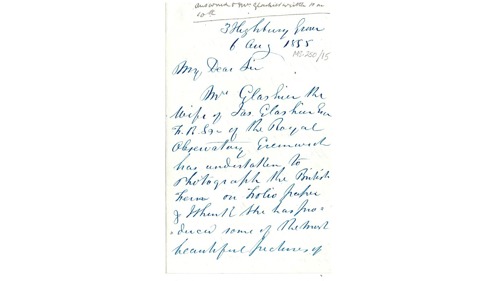 answered & Mrs Glaisher written to on
10th
3 Highbury Grove
6 Aug 1855
MS 250/15
My Dear Sir
Mrs Glashier the
Wife of Jas Glashier Esq
F.R.S. of the Royal
Observatory Greenwich
has undertaken to
Photograph the British
Ferns on Folio paper
& I think she has pro
=duced some of the most
beautiful pictures of